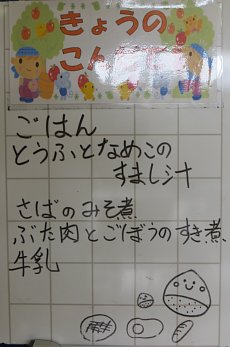 きょうの
こん
ごはん
とうふとなめこの
すまし汁
さばのみそ煮
ぶた肉とごぼうのすき煮
牛乳